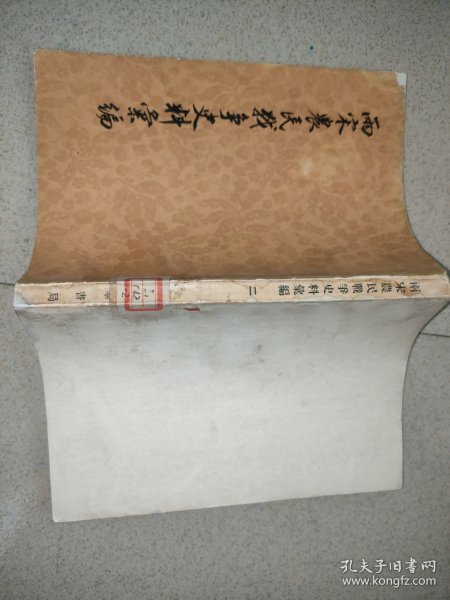 兩宋農民战争史料彙編
兩宋農民戰爭史料彙編 二
書局
孔夫子旧书网
www.kongfz.com